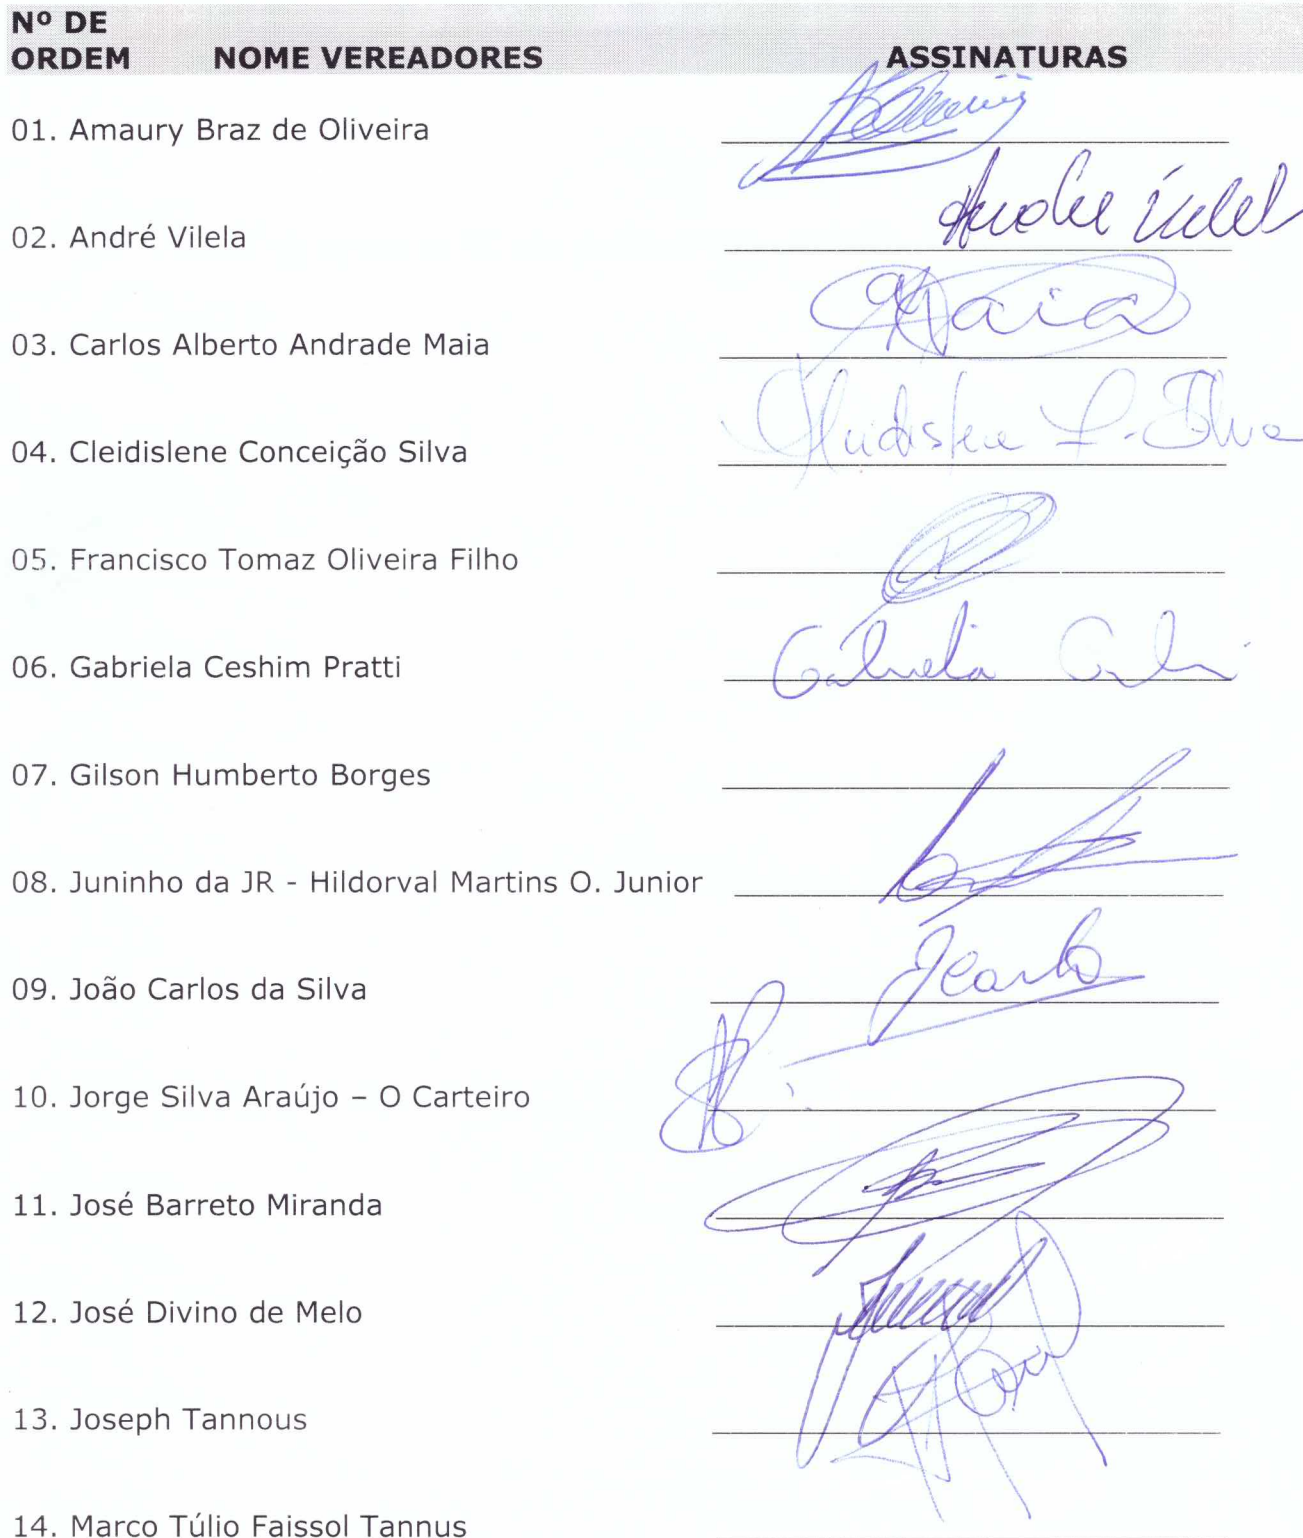 Nº DE
ORDEM NOME VEREADORES ASSINATURAS
01. Amaury Braz de Oliveira
02. André Vilela Andre Vilela
03. Carlos Alberto Andrade Maia Maia
04. Cleidislene Conceição Silva Cleidislene Silva
05. Francisco Tomaz Oliveira Filho
06. Gabriela Ceshim Pratti Gabriela
07. Gilson Humberto Borges
08. Juninho da JR - Hildorval Martins O. Junior
09. João Carlos da Silva JCarlo
10. Jorge Silva Araújo – O Carteiro
11. José Barreto Miranda
12. José Divino de Melo
13. Joseph Tannous
14. Marco Túlio Faissol Tannus